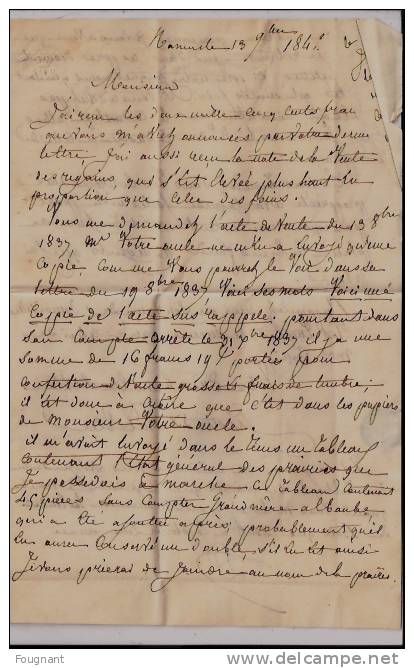 13 9bre 184
Monsieur
J'ai reçu les deux mille cinq cents frans
que vous m'avez annoncés par votre derniere
lettre. J'ai aussi reçu la note de la Vente
des regains, qui s'est élevée plus haut en
proportion que celle des foins.
Vous me demandez l'acte de Vente du 13 8bre
1837 Mr Votre oncle ne m'en a envoyé qu'une
Copie comme Vous pouvez le Voir dans sa
lettre du 19 8bre 1837 Voici ses mots Voici une
Copie de l'acte sus rappelé. pourtant dans
son Compte arrêté le 31 Xbre 1837 il y a une
somme de 16 frans 19 portée pour
confection d'acte grosse et frais de timbre;
il est donc à croire que c'est dans les papiers
de Monsieur Votre oncle.
il m'avait envoyé dans le tems un Tableau
contenant l'État général des prairies que
Je possedais à marche Ce Tableau contenant
45 pièces sans compter
qui a été ajoutée après, probablement qu'il
en aura Conservé un double, s'il en est ainsi
Je vous prierai de Joindre au nom de la prairie
Fougnant